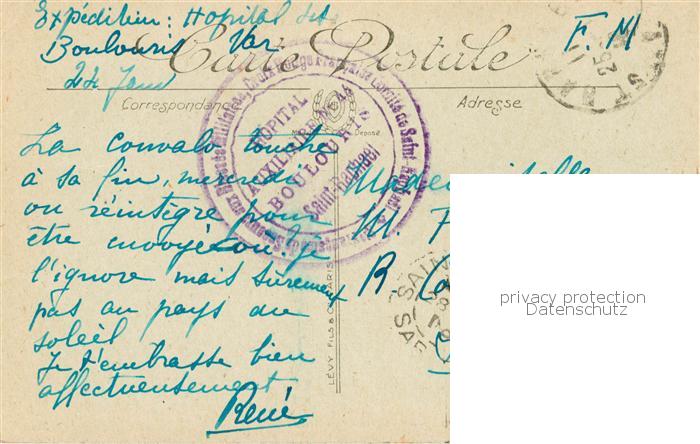 Expédition: Hopital
Boulouris Var
22 Janv
F. M
Carte Postale
Correspondance
Adresse
HOPITAL
AUXILIAIRE
BOULOURIS
Saint-Raphaël
Croix Rouge Française Comité de Saint-Raphaël
Déposé
La convalo touche
à sa fin, mercredi
on réintègre pour
être envoyé où, je
l'ignore mais sûrement
pas au pays du
soleil
Je t'embrasse bien
affectueusement
René
Mademoiselle
M. F
R.
LÉVY FILS & Cie PARIS
SAIN
SAR
25
privacy protection
Datenschutz